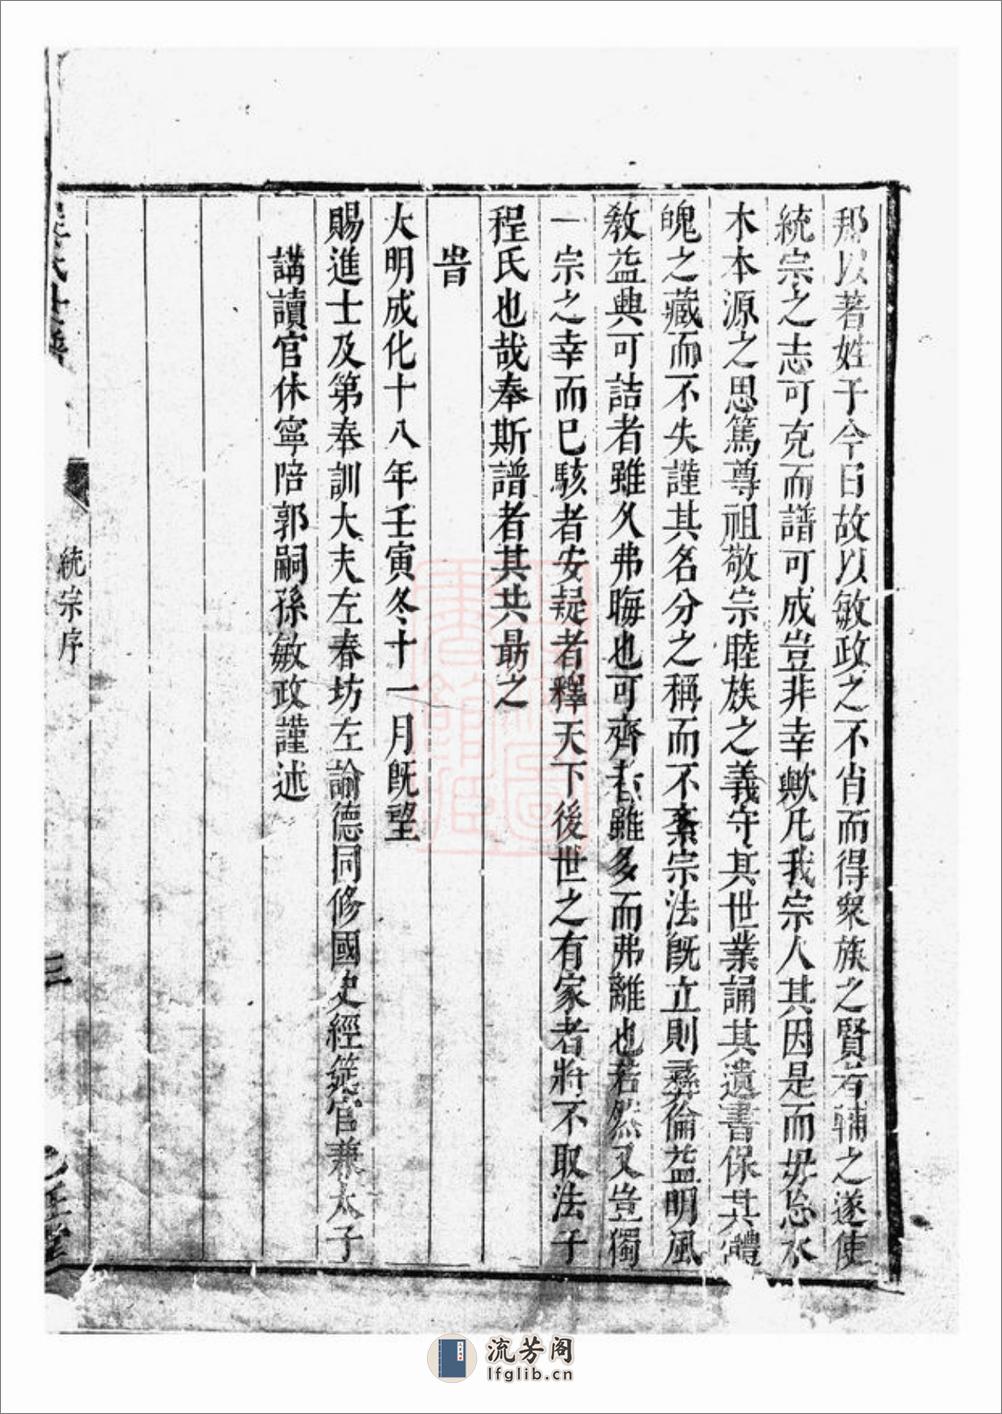 那以著姓于今日故以敏政之不肖而得衆族之賢者輔之遂使
統宗之志可克而譜可成豈非幸歟凡我宗人其因是而毋忘水
木本源之思篤尊祖敬宗睦族之義守其世業誦其遺書保其體
魄之藏而不失謹其名分之稱而不紊宗法旣立則彞倫益明風
敎益興可詰者雖久弗晦也可齊者雖多而弗離也若然又豈獨
一宗之幸而已駭者安疑者釋天下後世之有家者將不取法于
程氏也哉奉斯譜者其共勗之
旹
大明成化十八年壬寅冬十一月旣望
賜進士及第奉訓大夫左春坊左諭德同修國史經筵官兼太子
講讀官休寧陪郭嗣孫敏政謹述
程氏世譜
統宗序
三
流芳阁
lfglib.cn